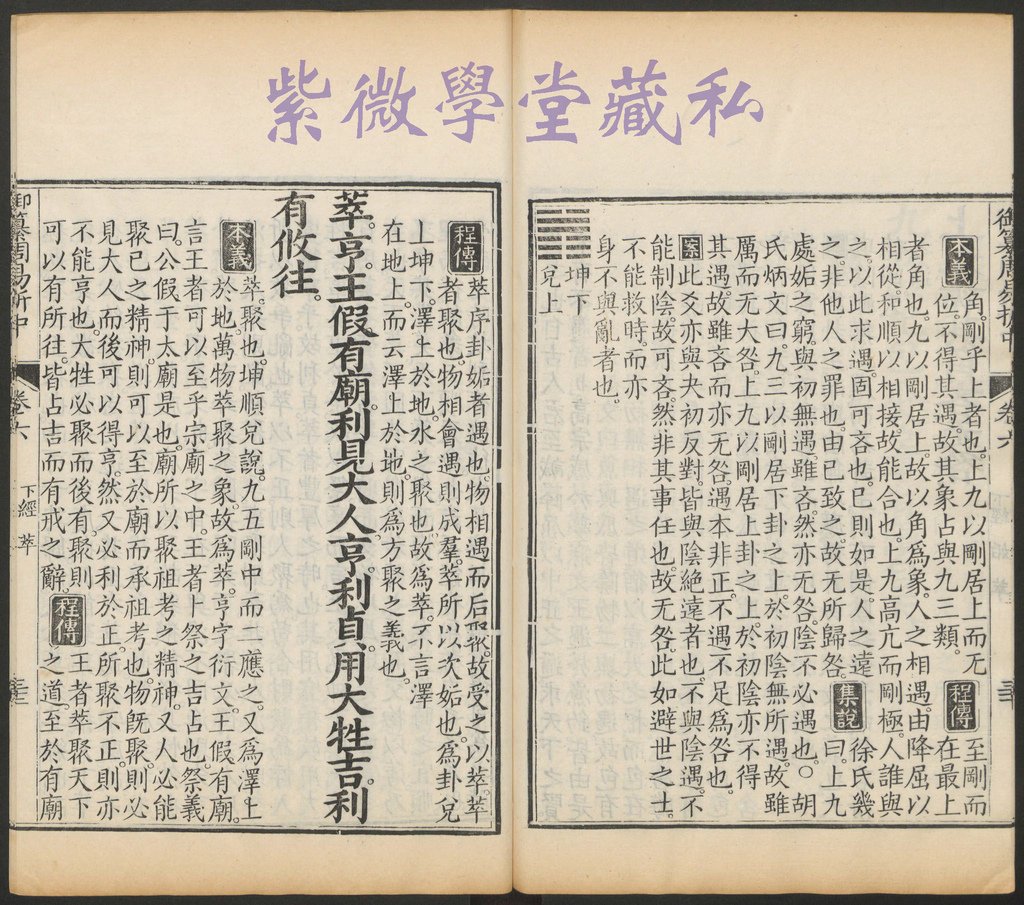 紫微學堂藏私
御纂周易折中 卷六
本義 角。剛乎上者也。上九以剛居上而无
位。不得其遇。故其象占與九三類。
程傳 至剛而
在最上
者角也。九以剛居上。故以角爲象。人之相遇。由降屈以
相從。和順以相接。故能合也。上九高亢而剛極。人誰與
之。以此求遇。固可吝也。已則如是。人之遠
之。非他人之罪也。由已致之。故无所歸咎。
集說 徐氏幾
曰。上九
處姤之窮。與初無遇。雖吝。然亦无咎。陰不必遇也。○胡
氏炳文曰。九三以剛居下卦之上。於初陰無所遇。故雖
厲而无大咎。上九以剛居上卦之上。於初陰亦不得
其遇。故雖吝而亦无咎。遇本非正。不遇不足爲咎也。
案 此爻亦與夬初反對。皆與陰絕遠者也。不與陰遇。不
能制陰。故可吝。然非其事任也。故无咎。此如避世之士。
不能救時。而亦
身不與亂者也。
坤下
兌上
程傳 萃序卦。姤者遇也。物相遇而后聚。故受之以萃。萃
者聚也。物相會遇則成羣。萃所以次姤也。爲卦兌
上坤下。澤上於地。水之聚也。故爲萃。不言澤
在地上。而云澤上於地。則爲方聚之義也。
萃。亨。王假有廟。利見大人。亨。利貞。用大牲吉。利
有攸往。
本義 萃。聚也。坤順兌說。九五剛中。而二應之。又爲澤上
於地。萬物萃聚之象。故爲萃。亨字衍文。王假有廟。
言王者可以至乎宗廟之中。王者卜祭之吉占也。祭義
曰。公假于太廟是也。廟所以聚祖考之精神。又人必能
聚已之精神。則可以至於廟而承祖考也。物旣聚。則必
見大人而後可以得亨。然又必利於正。所聚不正。則亦
不能亨也。大牲必聚而後有。聚則
可以有所往。皆占吉而有戒之辭。
程傳 王者萃聚天下
之道。至於有廟
御纂周易折中 卷六 下經 萃